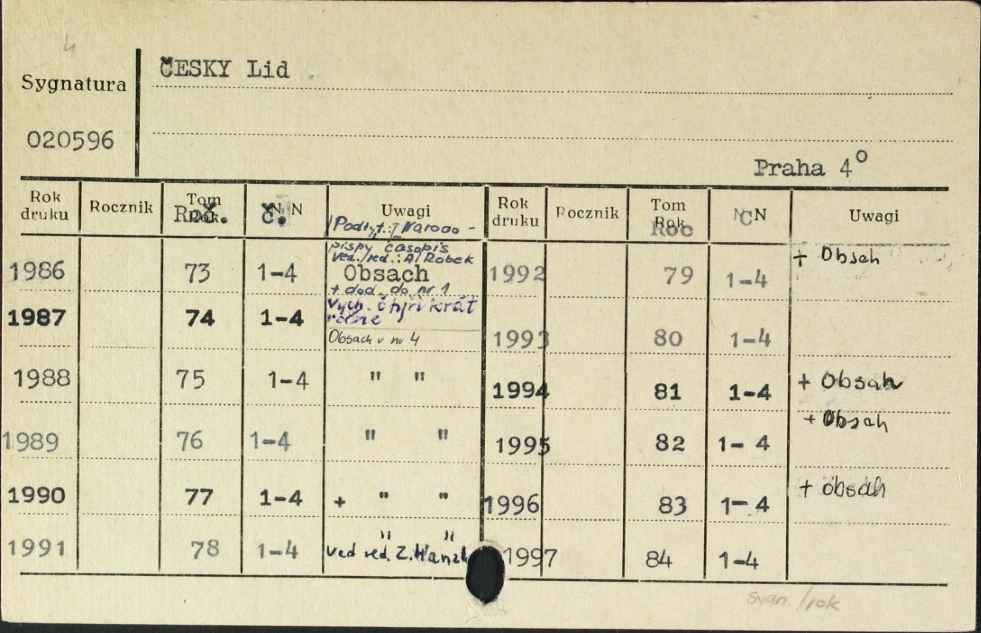 4
Sygnatura ČESKY Lid
020596
Praha 4°
Rok druku Rocznik Tom Roč. Č. N Uwagi Rok druku Rocznik Tom Roc C N Uwagi
/Podtyt.: Narodo-
pispy časopis
ved. red.: A. Robek
1986 73 1-4 Obsach 1992 79 1-4 + Obsah
+ dod. do nr 1
1987 74 1-4 Vych. čtyři krát
ročně
Obsach v nr 4 1993 80 1-4
1988 75 1-4 " " 1994 81 1-4 + Obsah
1989 76 1-4 " " 1995 82 1-4 + Obsah
1990 77 1-4 + " " 1996 83 1-4 + obsah
" "
1991 78 1-4 ved. red. Z. 1997 84 1-4
sygn. / rok